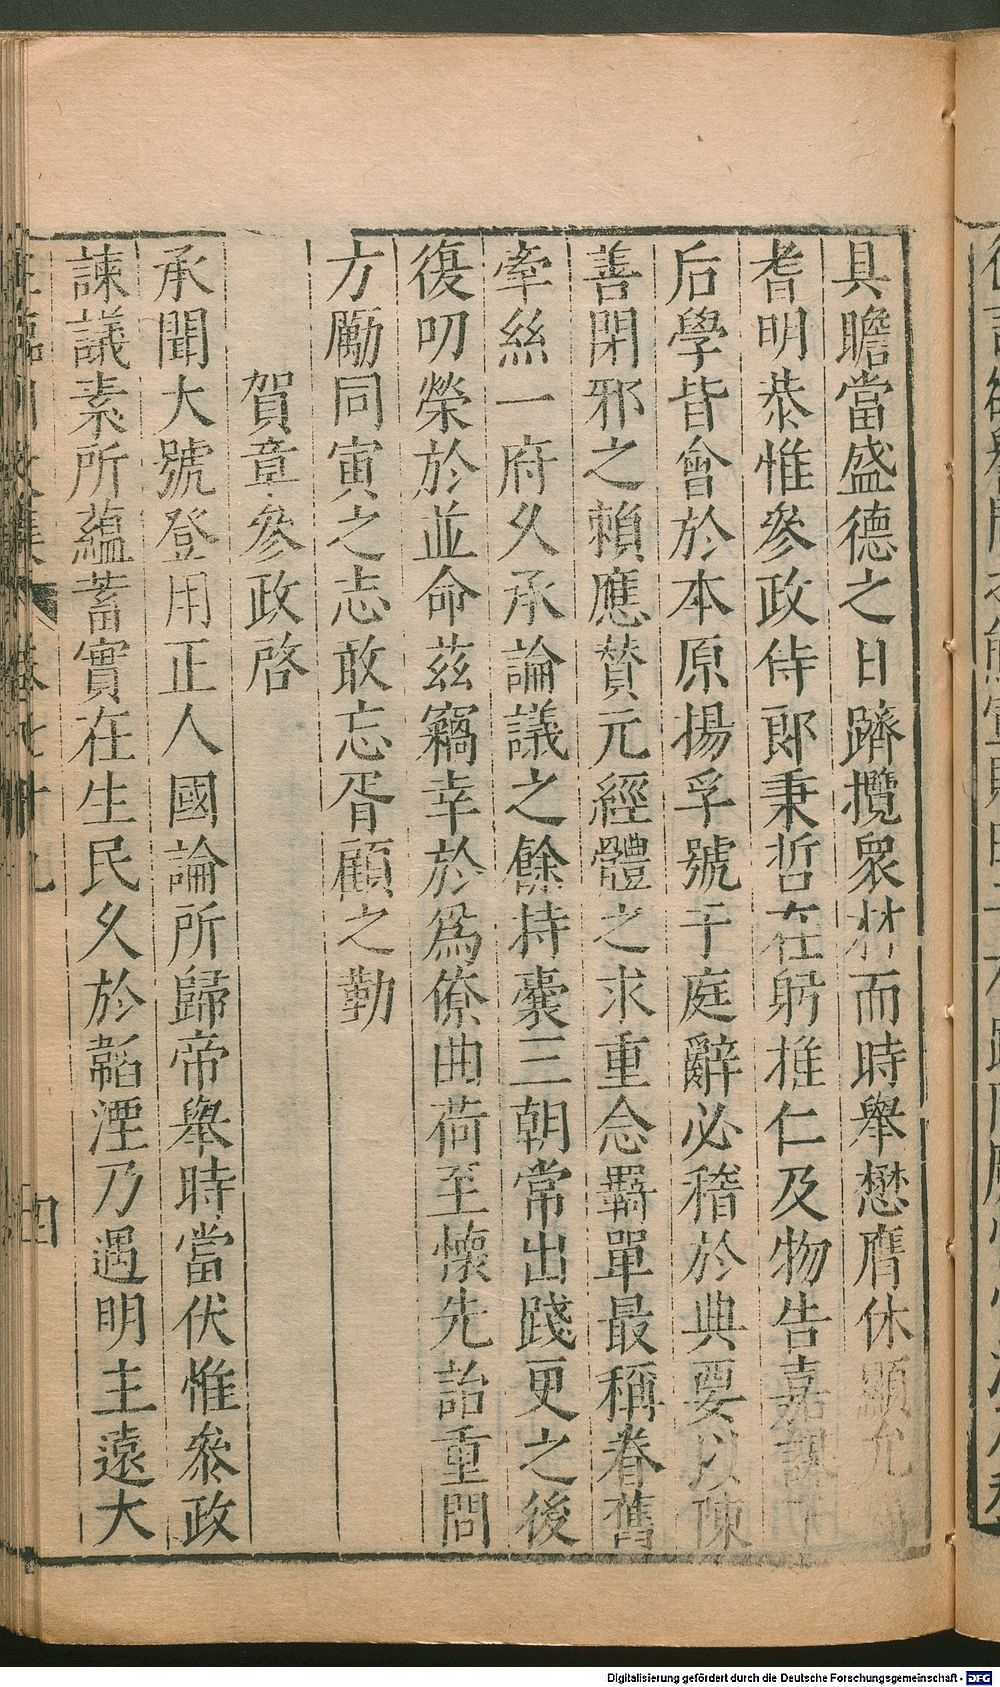 具瞻當盛德之日躋攬衆材而時舉懋膺休顯允
耆明恭惟參政侍郎秉哲在躬推仁及物告嘉謀
后學皆會於本原揚孚號于庭辭必稽於典要以陳
善閑邪之賴應贊元經體之求重念羇單最稱眷舊
牽絲一府久承論議之餘持囊三朝常出踐更之後
復叨榮於並命茲竊幸於爲僚曲荷至懷先詒重問
方勵同寅之志敢忘胥顧之勤
賀章參政啓
承聞大號登用正人國論所歸帝舉時當伏惟參政
諫議素所蘊蓄實在生民久於韜湮乃遇明主遠大
Digitalisierung gefördert durch die Deutsche Forschungsgemeinschaft - DFG